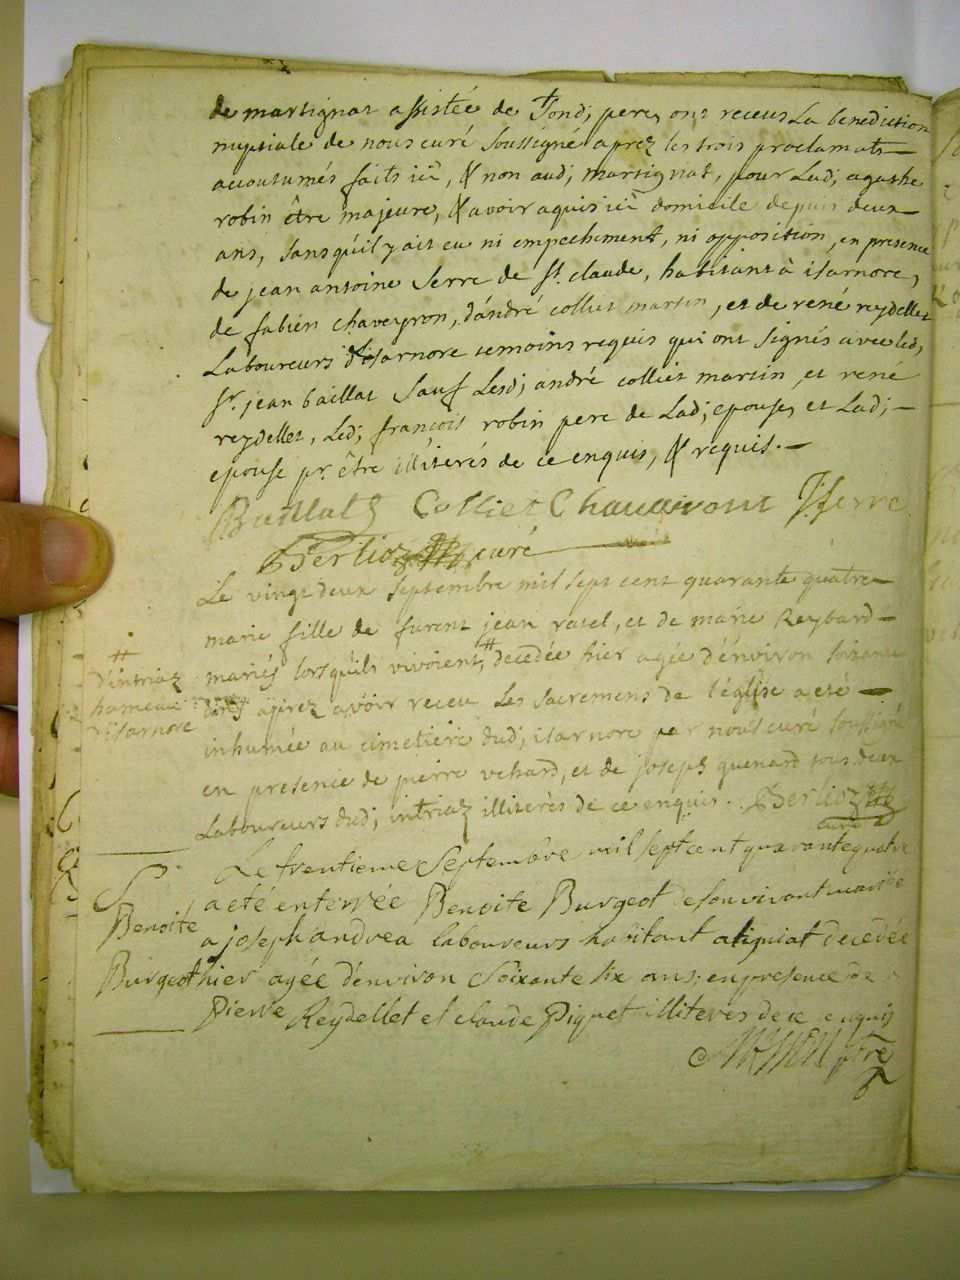 de martignat assistée de sond; pere, ont receus La benediction
nuptiale de nous curé soussigné aprez les trois proclamats
accoutumés faits ici, & non aud; martignat, pour Lad; agathe
robin être majeure, & avoir aquis ici domicile depuis deux
ans, sans qu'il y ait eu ni empechement, ni opposition, en presence
de jean antoine serre de st. claude, habitant à isarnore,
de fabien chaveyron, d'andré colliet martin, et de rené reydellet
Laboureurs d'isarnore temoins requis qui ont signés avec led,
sr. jean baillat sauf Lesd; andré colliet martin, et rené
reydellet, Led; françois robin pere de Lad; epouse, et Lad;
epouse pr. être illiterés de ce enquis, & requis.
Baillat Colliet Chaveront J serre
Berlioz curé
Le vingt deux septembre mil sept cent quarante quatre
marie fille de furent jean ratel, et de marie Reybard
mariés lorsqu'ils vivoient, # decedée hier agée d'environ soixante
# d'intriaz hameau d'isarnore
ans aprez avoir receu Les sacremens de l'église a eté
inhumée au cimetiere dud; isarnore par nous curé soussigné
en presence de pierre vehard, et de joseph quenard tous deux
Laboureurs dud; intriaz illiterés de ce enquis. Berlioz
curé
Le trentieme septembre mil sept cent quarante quatre
a eté enterrée Benoite Burgeot de son vivant mariée
Benoite
a joseph andrea laboureurs habitant a tigniat decedée
Burgeot
hier agée d'environ soixante six ans; en presence de
Pierre Reydellet et claude Piquet illiterés de ce enquis
ptre